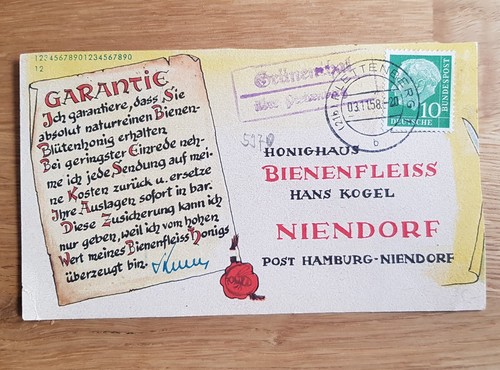 12345678901234567890
12
GARANTIE
Ich garantiere, dass Sie
absolut naturreinen Bienen-
Blütenhonig erhalten
Bei geringster Einrede neh-
me ich jede Sendung auf mei-
ne Kosten zurück u. ersetze
Ihre Auslagen sofort in bar.
Diese Zusicherung kann ich
nur geben, weil ich vom hohen
Wert meines Bienenfleiss Honigs
überzeugt bin.
über
ETTENBERG
03.11.58
b
10
DEUTSCHE
BUNDESPOST
HONIGHAUS
BIENENFLEISS
HANS KOGEL
NIENDORF
POST HAMBURG-NIENDORF